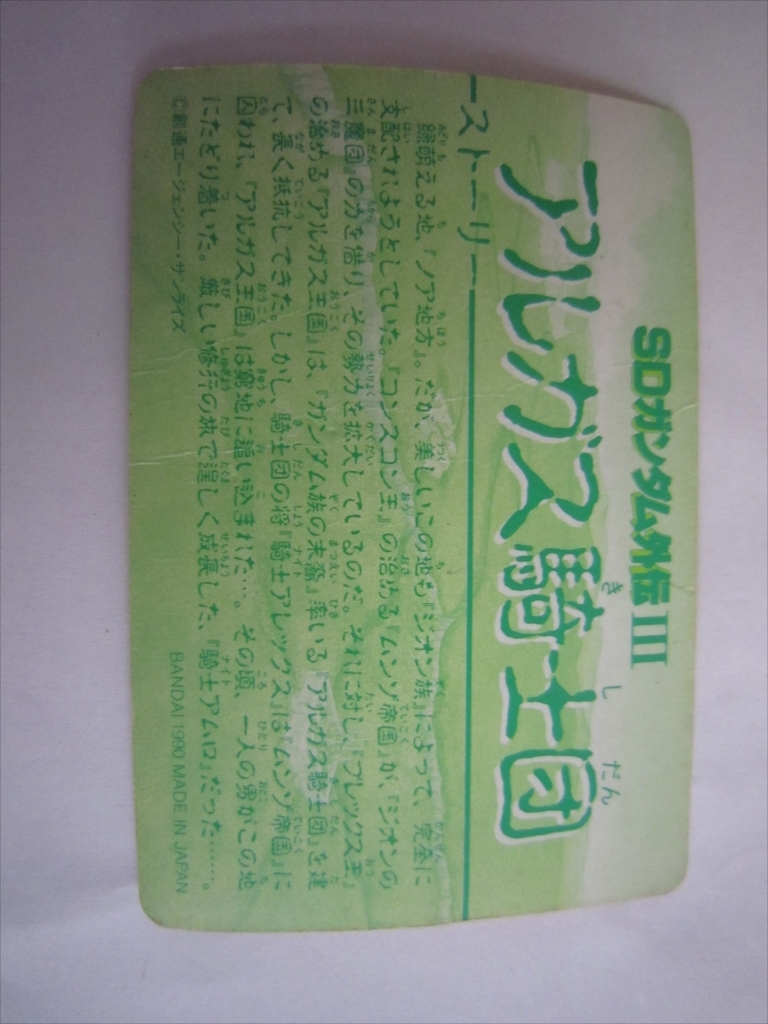 SDガンダム外伝III
アルガス騎士団
ーストーリー
緑萌える地、『ノア地方』。だが、美しいこの地も『ジオン族』によって、完全に
支配されようとしていた。『コンスコン王』の治める『ムンゾ帝国』が、『ジオンの
三魔団』の力を借り、その勢力を拡大しているのだ。それに対し、『ブレックス王』
の治める『アルガス王国』は、『ガンダム族の末裔』率いる『アルガス騎士団』を建
て、長く抵抗してきた。しかし、騎士団の将『騎士アレックス』は『ムンゾ帝国』に
囚われ、『アルガス王国』は窮地に追い込まれた…。その頃、一人の男がこの地
にたどり着いた。厳しい修行の旅で逞しく成長した、『騎士アムロ』だった……。
©創通エージェンシー・サンライズ BANDAI 1990 MADE IN JAPAN